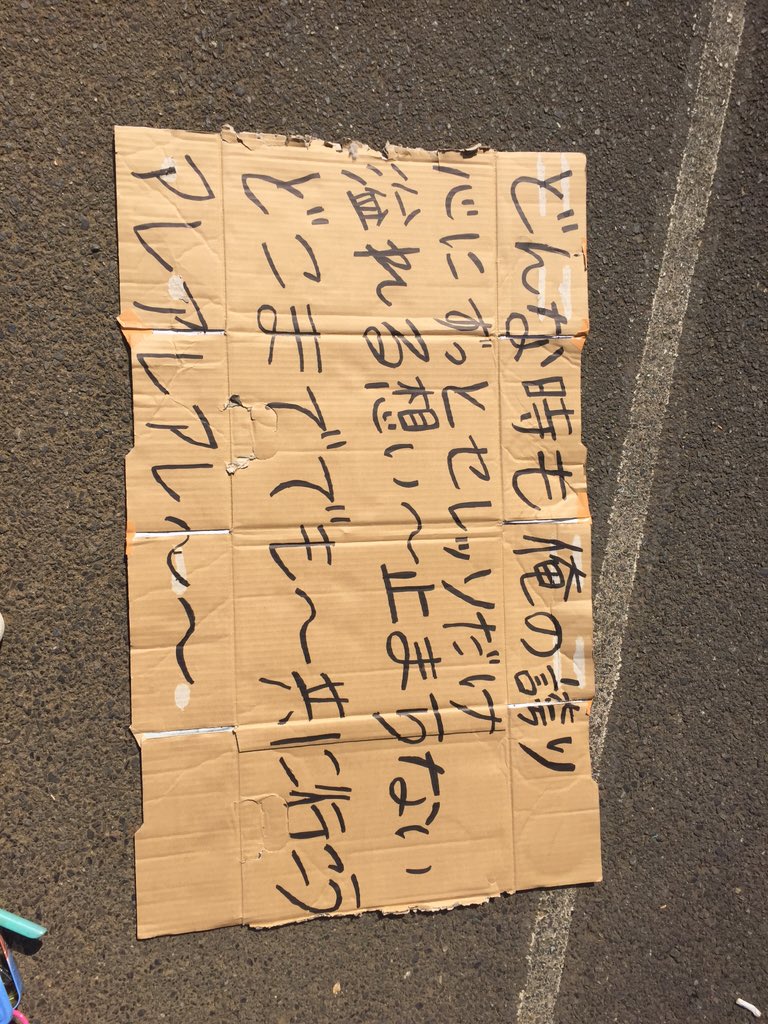 どんな時も 俺の誇り
心にずっとセレッソだけ
溢れる想い〜止まらない
どこまででも〜共に行こう
アレアレアレ〜〜